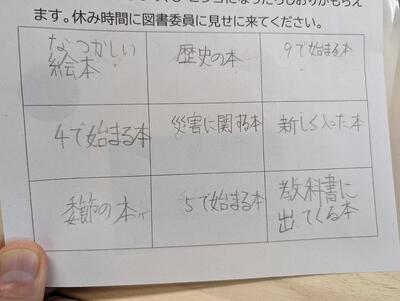 ます。休み時間に図書委員に見せに来てください。
なつかしい
絵本
歴史の本
9で始まる本
4で始まる本
災害に関する本
新しく入った本
季節の本
5で始まる本
教科書に
出てくる本